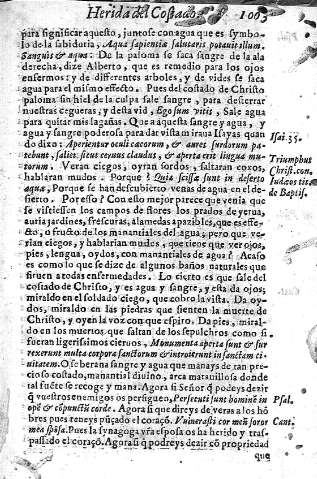 Herida del Costado. 1003
para significar aquesto, juntose con agua que es symbo-
lo de la sabiduria, Aqua sapientiæ salutaris potauit illum.
Sanguis & aqua: De la paloma se saca sangre de la ala
derecha, dize Alberto, que es remedio para los ojos
enfermos: y de differentes arboles, y de vides se saca
agua para el mismo effecto. Pues del costado de Christo
paloma sin hiel de la culpa sale sangre, para desterrar
nuestras cegueras, y desta vid, Ego sum vitis, Sale agua
para quitar mis lagañas. Que a aquesta sangre y agua, y
agua y sangre poderosa para dar vista miraua Isayas quan
do dixo: Aperientur oculi cæcorum, & aures surdorum pa-
tebunt, saliet sicut ceruus claudus, & aperta erit lingua mu-
torum. Veran ciegos, oyran sordos, saltaran coxos,
hablaran mudos. Porque? Quia scissæ sunt in deserto
aquæ, Porque se han descubierto venas de agua en el de-
sierto. Por esso? Con esto mejor parece que venia que
se vistiessen los campos de flores los prados de yerua,
auria jardines, frescuras, alamedas apazibles, que es effe-
cto, o frutto de los manantiales del agua; pero que ve-
rian ciegos, y hablarian mudos, que tiene que ver ojos,
pies, lengua, oydos, con manantiales de agua? Acaso
es como lo que se dize de algunos baños naturales que
siruen a todas enfermedades. Lo cierto es que sale del
costado de Christo, y es agua y sangre, y esta da ojos;
miraldo en el soldado ciego, que cobro la vista. Da oy-
dos, miraldo en las piedras que sienten la muerte de
Christo, y oyen la voz con que espiro. Da pies, miral-
do en los muertos que saltan de los sepulchros como si
fueran ligerissimos cieruos, Monumenta aperta sunt & sur
rexerunt multa corpora sanctorum & introierunt in sanctam ci-
uitatem. O soberana sangre y agua que manays de tan pre-
cioso costado, manantial diuino, arca marauillosa donde
tal fuente se recoge y mana. Agora si Señor q̃ podeys dezir
q̃ vuestros enemigos os persiguen, Persecuti sunt hominẽ in-
opẽ & cõpunctũ corde. Agora si que direys de veras a los hõ
bres pues teneys pũçado el coraçõ. Vulnerasti cor meũ soror
mea spõsa. Pues la synagoga vr̃a esposa os ha herido y tras-
passado el coraçõ. Agora si q̃ podreys dezir cõ propriedad
que
Isai. 35.
Triumphus
Christ. con.
Iudæos tit.
de Baptis.
Psal.
Cant.